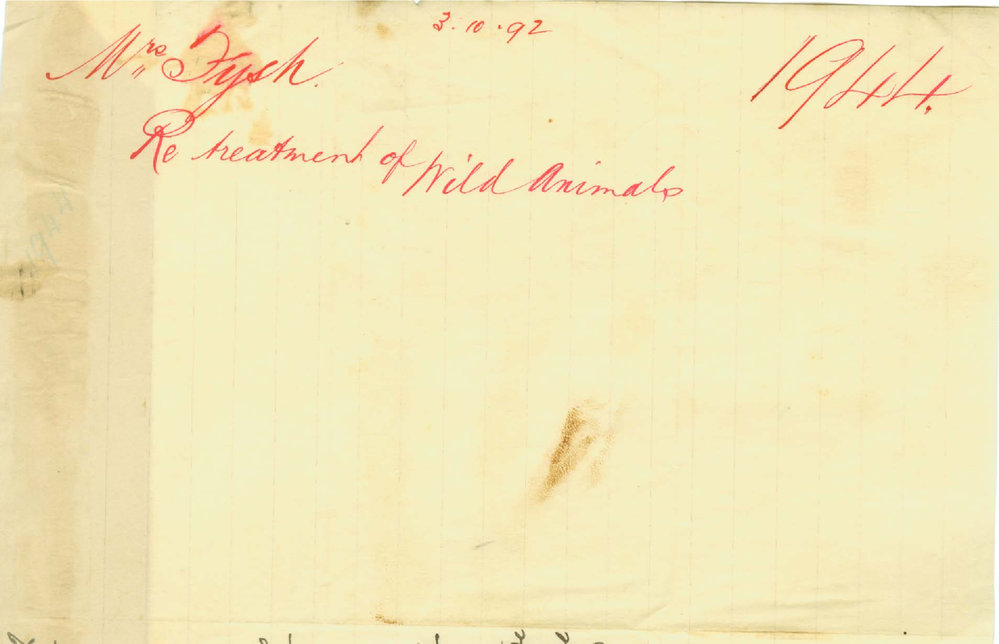 3.10.92
Mrs Fysh.
1944.
Re treatment of Wild Animals